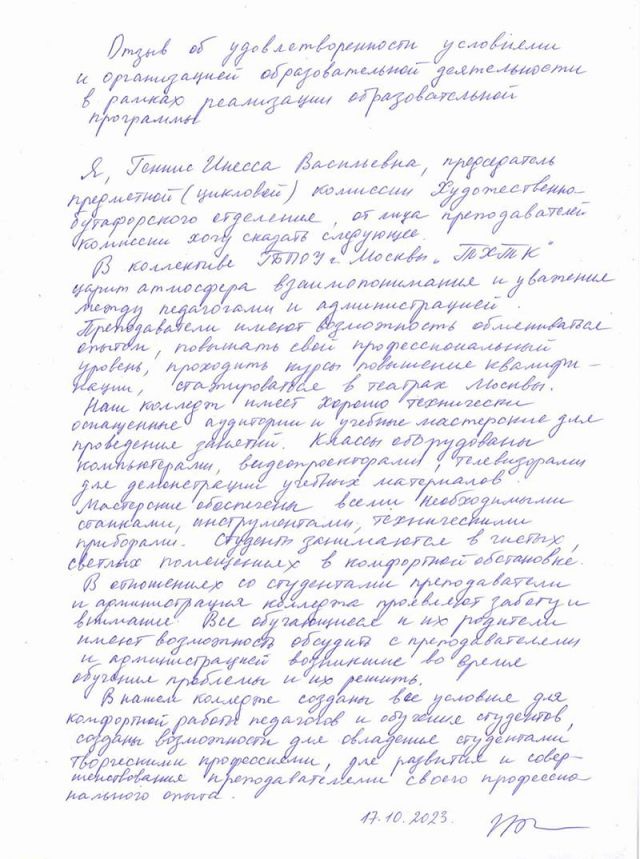 Отзыв об удовлетворенности условиями
и организацией образовательной деятельности
в рамках реализации образовательной
программы
Я, Геннис Инесса Васильевна, председатель
предметной (цикловой) комиссии Художественно-
бутафорского отделение, от лица преподавателей
комиссии хочу сказать следующее.
В коллективе ГБПОУ г. Москвы „ТХТК"
царит атмосфера взаимопонимания и уважения
между педагогами и администрацией.
Преподаватели имеют возможность обмениваться
опытом, повышать свой профессиональный
уровень, проходить курсы повышение квалифи-
кации, стажироваться в театрах Москвы.
Наш колледж имеет хорошо технически
оснащенные аудитории и учебные мастерские для
проведение занятий. Классы оборудованы
компьютерами, видеопроекторами, телевизорами
для демонстрации учебных материалов
Мастерские обеспечены всеми необходимыми
станками, инструментами, техническими
приборами. Студенты занимаются в чистых,
светлых помещениях в комфортной обстановке.
В отношениях со студентами преподаватели
и администрация колледжа проявляют заботу и
внимание. Все обучающиеся и их родители
имеют возможность обсудить с преподавателями
и администрацией возникшие во время
обучения проблемы и их решить.
В нашем колледже созданы все условия для
комфортной работы педагогов и обучения студентов,
созданы возможности для овладение студентами
творческими профессиями, для развития и совер-
шенствования преподавателями своего профессио-
нального опыта.
17.10.2023.